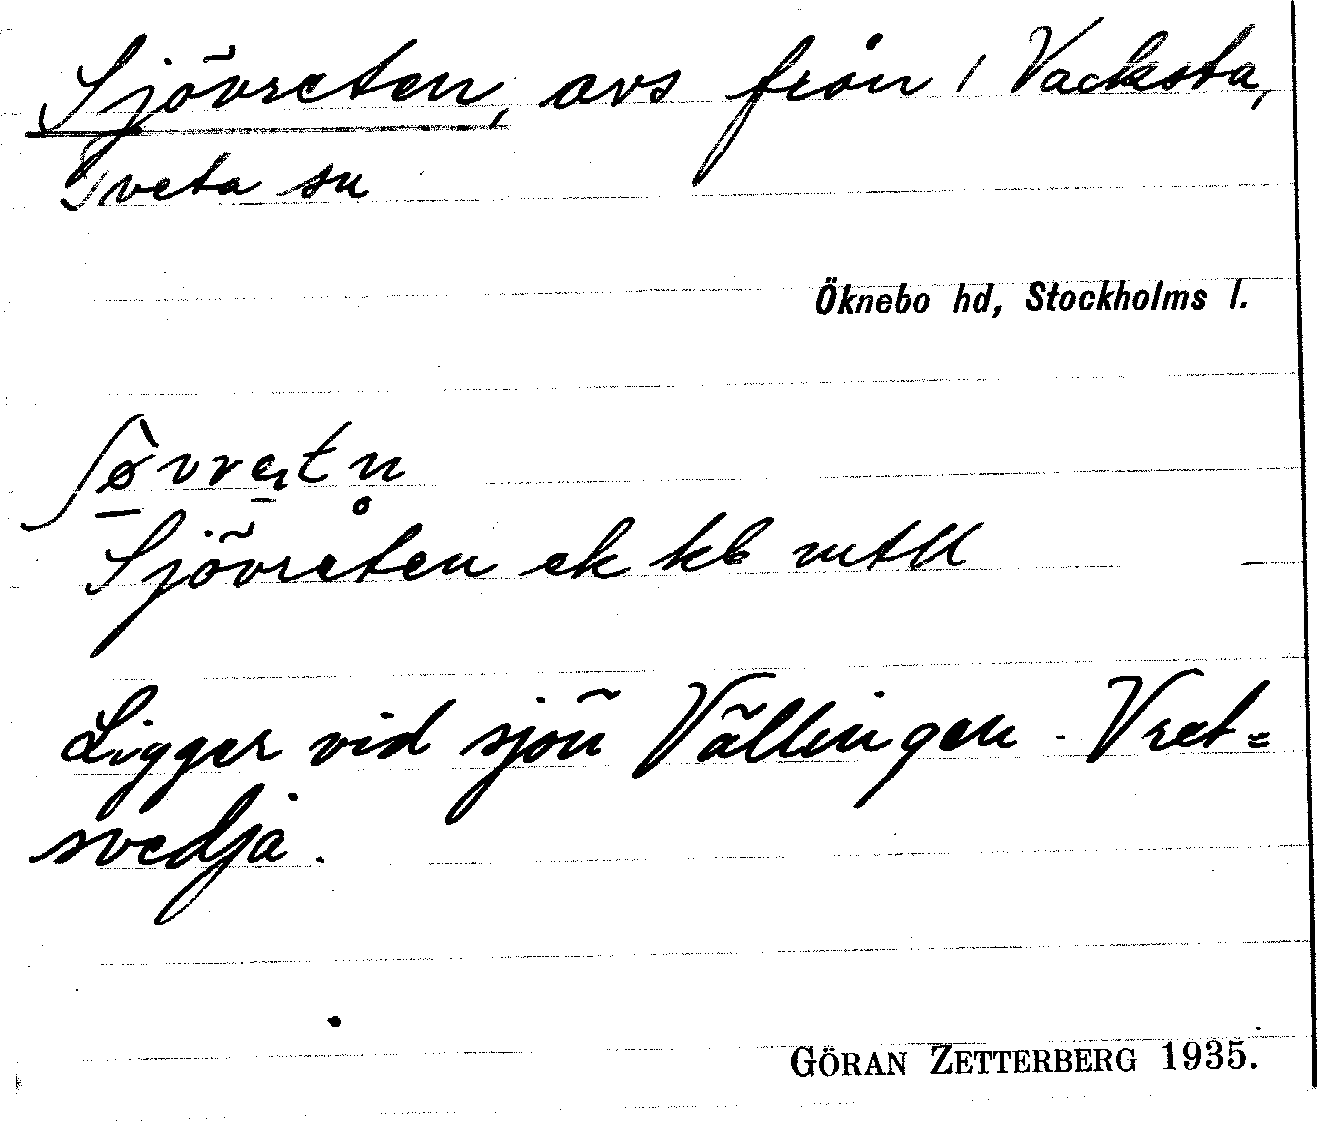 Sjövreten, avs från 1 Vacksta,
Tveta sn
Öknebo hd, Stockholms l.
Sjövreten ek kb mtll
Ligger vid sjön Vällingen. Vret-
svedja.
GÖRAN ZETTERBERG 1935.